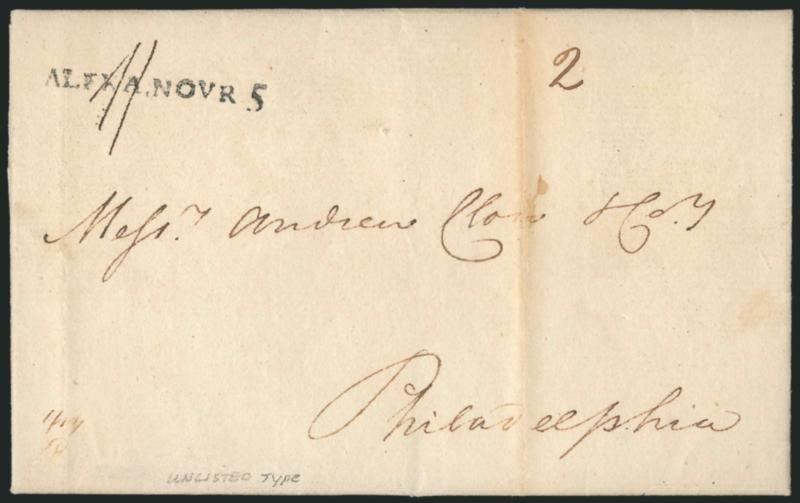 ALEXA. NOVR 5
2
Messrs. Andrew Clow & Coy
Philadelphia
UNLISTED TYPE